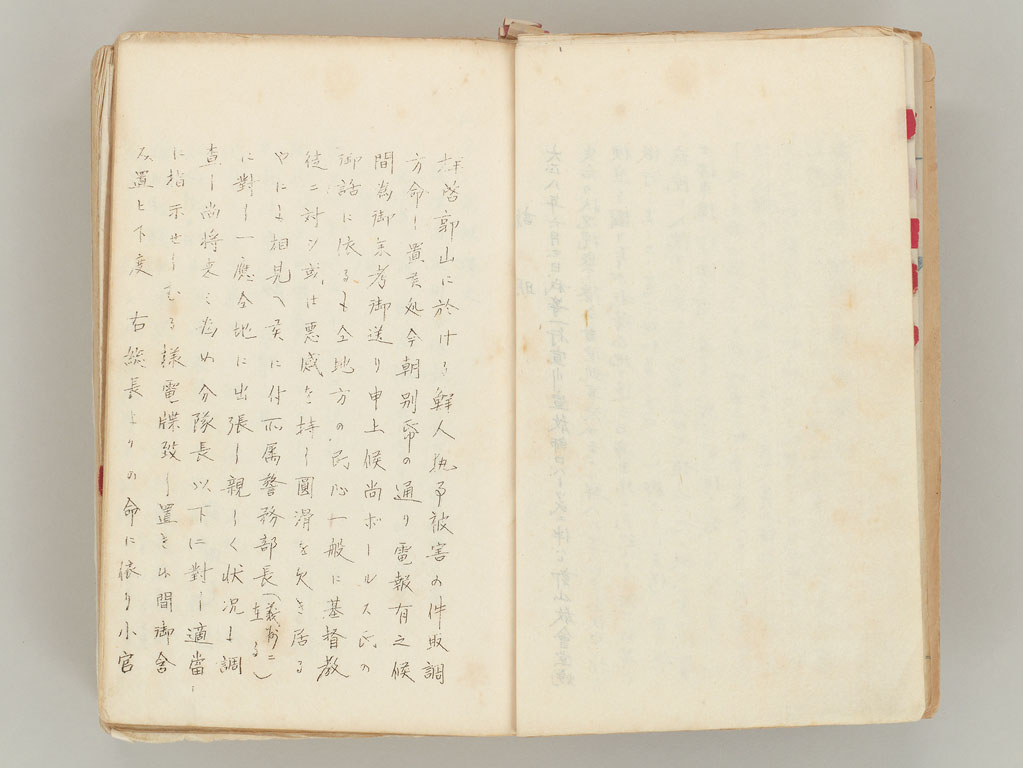 拝啓郭山に於ける鮮人執事被害の件取調
方命し置候処今朝別帋の通り電報有之候
間為御参考御送り申上候尚ボールス氏の
御話に依るも仝地方の民心一般に基督教
徒ニ対シ或は悪感を持し圓滑を欠き居る
やに相見へ候に付所属警務部長(義州ニ在る)
に對し一應仝地に出張し親しく状況を調
査し尚将来の為め分隊長以下に對し適當
に指示せしむる様電牒致し置き候間御含
み置き下度 右総長よりの命に依り小官